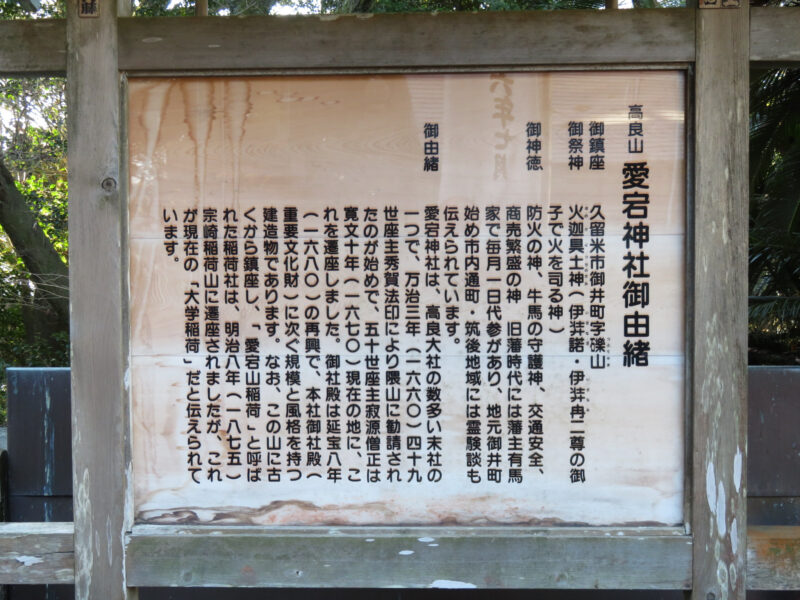 高良山 愛宕神社御由緒
御鎮座 久留米市御井町字礫山
御祭神 火迦具土神（伊弉諾・伊弉冉二尊の御
子で火を司る神）
御神徳 防火の神、牛馬の守護神、交通安全、
商売繁盛の神 旧藩時代には藩主有馬
家で毎月一日代参があり、地元御井町
始め市内通町・筑後地域には霊験談も
伝えられています。
御由緒 愛宕神社は、高良大社の数多い末社の
一つで、万治三年（一六六〇）四十九
世座主秀賀法印により隈山に勧請され
たのが始めで、五十世座主寂源僧正は
寛文十年（一六七〇）現在の地に、こ
れを遷座しました。御社殿は延宝八年
（一六八〇）の再興で、本社御社殿（
重要文化財）に次ぐ規模と風格を持つ
建造物であります。なお、この山に古
くから鎮座し、「愛宕山稲荷」と呼ば
れた稲荷社は、明治八年（一八七五）
宗崎稲荷山に遷座されましたが、これ
が現在の「大学稲荷」だと伝えられて
います。
六年七月